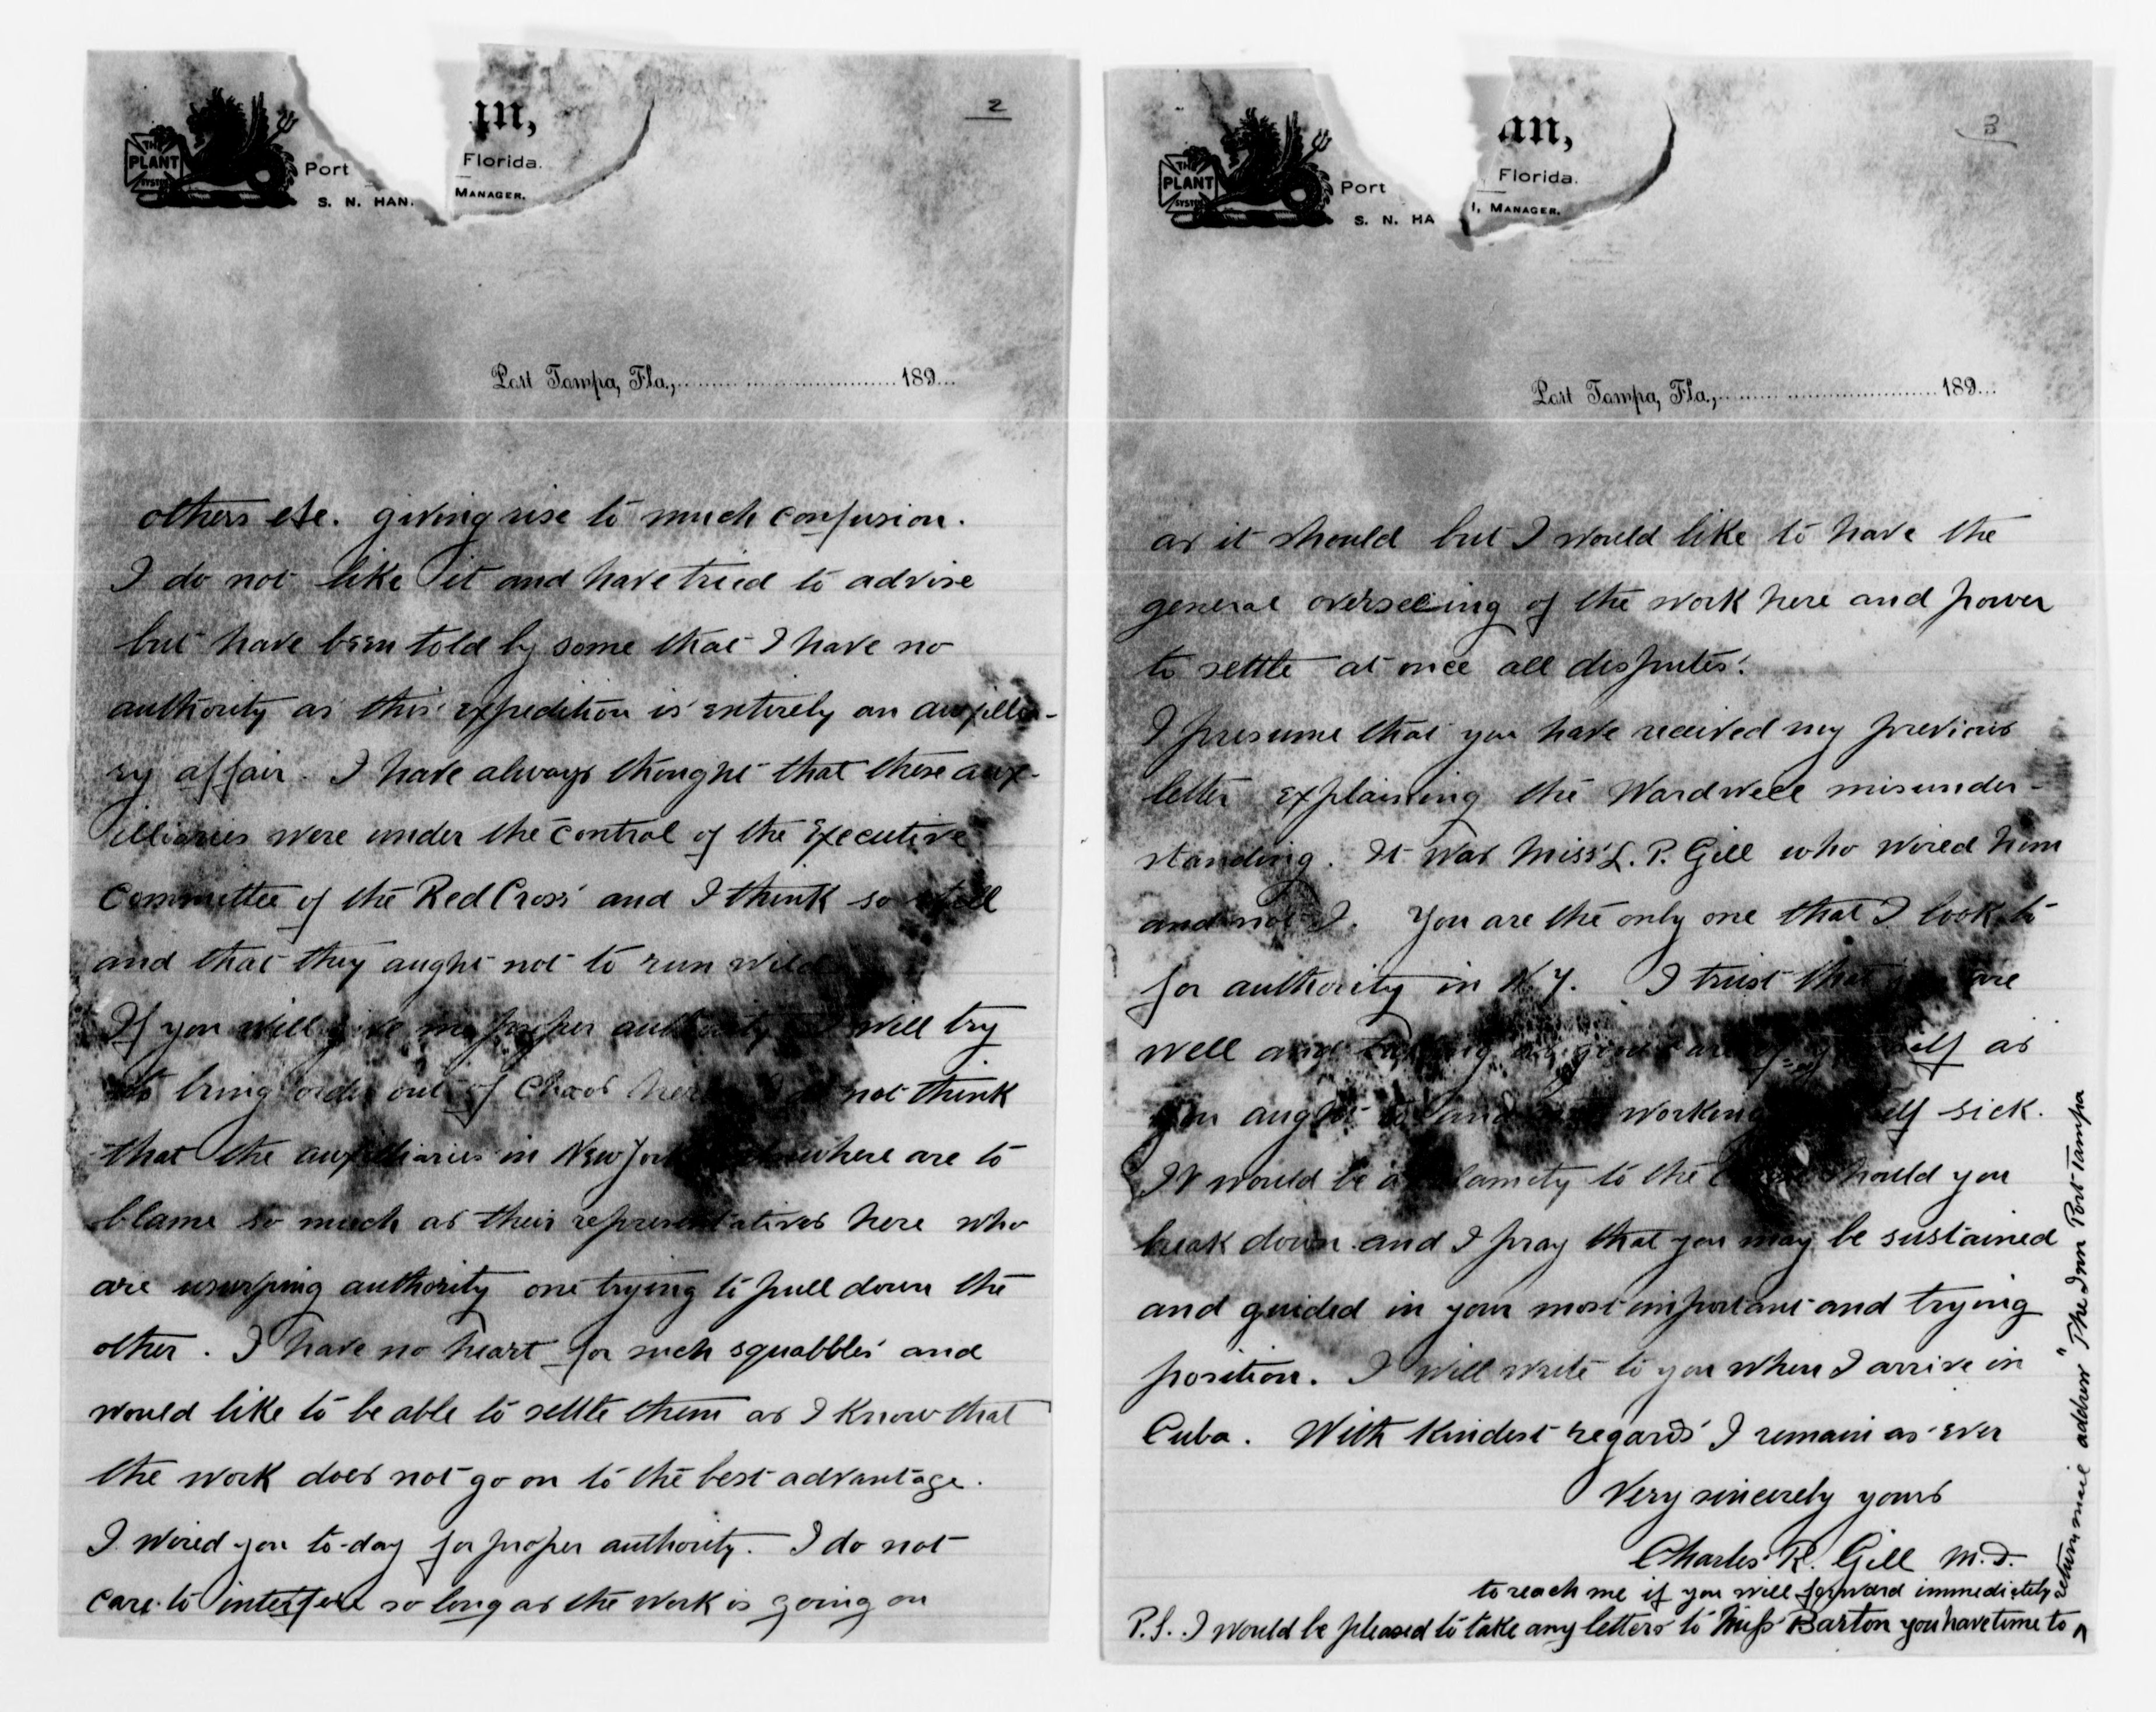 THE
PLANT
SYSTEM
Port
Florida.
S. N. HAN.
MANAGER.
2
Port Tampa, Fla., 189
others etc. giving rise to much confusion.
I do not like it and have tried to advise
but have been told by some that I have no
authority as this expedition is entirely an auxillia-
ry affair. I have always thought that these aux-
illiaries were under the control of the Executive
Committee of the Red Cross and I think so still
and that they aught not to run wild
If you will give me proper authority I will try
to bring order out of Chaos here I do not think
that the auxiliaries in New York where are to
blame so much as their representatives here who
are usurping authority one trying to pull down the
other. I have no heart for such squabbles and
would like to be able to settle them as I know that
the work does not go on to the best advantage.
I wired you to-day for proper authority. I do not
care to interfere so long as the work is going on
THE
PLANT
SYSTEM
Port
an,
Florida.
S. N. HA
MANAGER.
3
Port Tampa, Fla., 189
as it should but I would like to have the
general overseeing of the work here and power
to settle at once all disputes.
I presume that you have received my previous
letter explaining the Wardwell misunder-
standing. It was Miss L. P. Gill who wired him
and not I. You are the only one that I look to
for authority in N.Y. I trust that are
well and taking good care of yourself as
you aught to and working sick.
It would be a calamity to the should you
break down and I pray that you may be sustained
and guided in your most important and trying
position. I will write to you when I arrive in
Cuba. With kindest regards I remain as ever
Very sincerely yours
Charles R. Gill M.D.
to reach me if you will forward immediately
P.S. I would be pleased to take any letters to Miss Barton you have time to ^
return mail address "The Inn Port Tampa